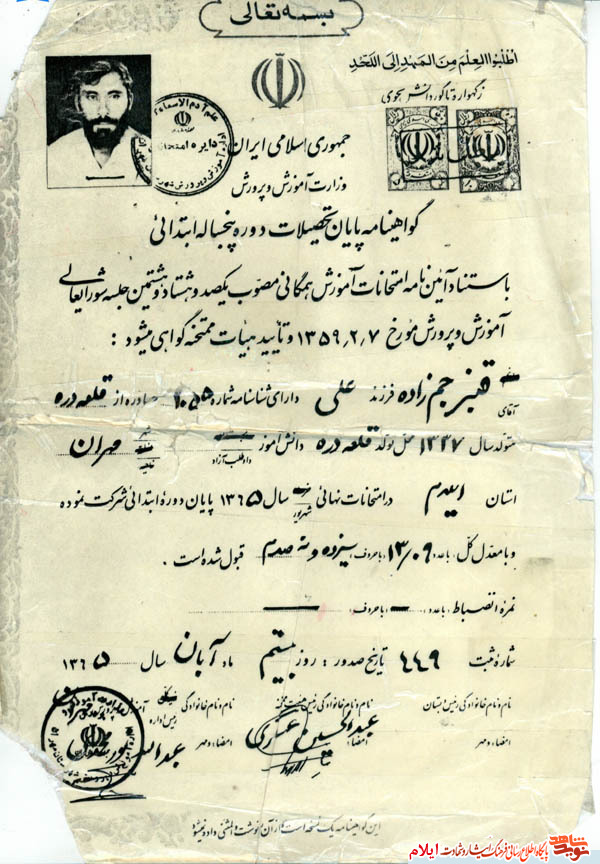 بسمه تعالی
اطلبوا العلم من المهد الی اللحد
ز گهواره تا گور دانش بجوی
جمهوری اسلامی ایران
وزارت آموزش و پرورش
گواهینامه پایان تحصیلات دوره پنجساله ابتدائی
با استناد آئین نامه امتحانات آموزش همگانی مصوب یکصد و هشتاد و هشتمین جلسه شورایعالی
آموزش و پرورش مورخ ۱۳۵۹٫۲٫۷ و تأیید هیأت ممتحنه گواهی میشود :
آقای قنبر جم زاده فرزند علی دارای شناسنامه شماره ۱۰۵۵ صادره از قلعه دره
متولد سال ۱۳۳۷ محل تولد قلعه دره دانش آموز داوطلب آزاد شهر مهران
استان ایلام در امتحانات نهائی شهریور سال ۱۳۶۵ پایان دوره ابتدائی شرکت نموده
و با معدل کل، با عدد ۱۳/۰۹ (با حروف) سیزده و نه صدم قبول شده است .
نمره انضباط: با عدد — با حروف —
شماره ثبت ۴۴۹ تاریخ صدور : روز بیستم ماه آبان سال ۱۳۶۵
نام و نام خانوادگی رئیس دبستان نام و نام خانوادگی رئیس هیئت ممتحنه نام و نام خانوادگی رئیس اداره
امضاء و مهر امضاء عبدالحسین عسکری امضاء و مهر
این گواهینامه یک نسخه است و از آن رونوشت و المثنی داده نمیشود
نوید شاهد پایگاه اطلاع رسانی فرهنگ ایثار و شهادت ایلام